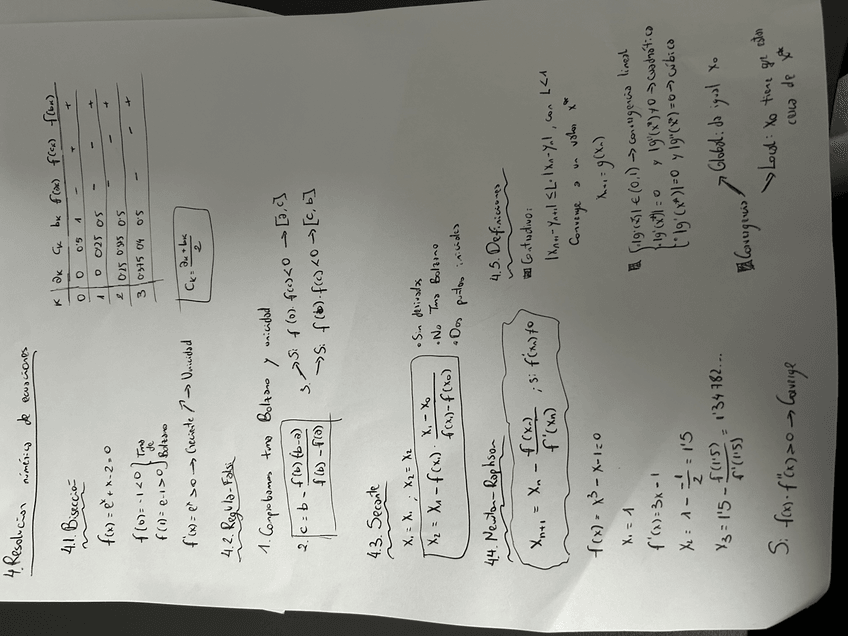 4. Resolución numérica de ecuaciones
4.1. Bisección
f(x) = e^x + x - 2 = 0
f(0) = -1 < 0 } Tma de Bolzano
f(1) = e - 1 > 0
f'(x) = e^x > 0 → Creciente ↗ → Unicidad
K | ak ck bk f(ak) f(ck) f(bk)
0 | 0 0.5 1 - + +
1 | 0 0.25 0.5 - - +
2 | 0.25 0.375 0.5 - - +
3 | 0.375 0.4 0.5 - - +
Ck = (ak + bk)/2
4.2. Regula-Falsi
1. Comprobamos tma Bolzano y unicidad
2. c = b - f(b)(b-a)/(f(b) - f(a))
3. → Si f(a)·f(c) < 0 → [a,c]
→ Si f(b)·f(c) < 0 → [c,b]
4.3. Secante
x1 = x1 ; x2 = x2
x2 = x1 - f(x1) · (x1 - x0)/(f(x1) - f(x0))
• Sin derivadas
• No Tma Bolzano
• Dos puntos iniciales
4.4. Newton-Raphson
xn+1 = xn - f(xn)/f'(xn) ; si f'(xn) ≠ 0
f(x) = x^3 - x - 1 = 0
x1 = 1
f'(x) = 3x - 1
x2 = 1 - -1/2 = 1'5
x3 = 1'5 - f(1'5)/f'(1'5) = 1'34782...
Si f(x)·f''(x) > 0 → Converge
4.5. Definiciones
Contractivo:
|xn+1 - yn+1| ≤ L·|xn - yn|, con L < 1
Converge a un valor x*
xn+1 = g(xn)
• |g'(x*)| ∈ (0,1) → convergencia lineal
• |g'(x*)| = 0 y |g''(x*)| ≠ 0 → cuadrática
• |g'(x*)| = 0 y |g''(x*)| = 0 → cúbica
Convergencia ↗ Global: da igual x0
↘ Local: x0 tiene que estar
cerca de x*